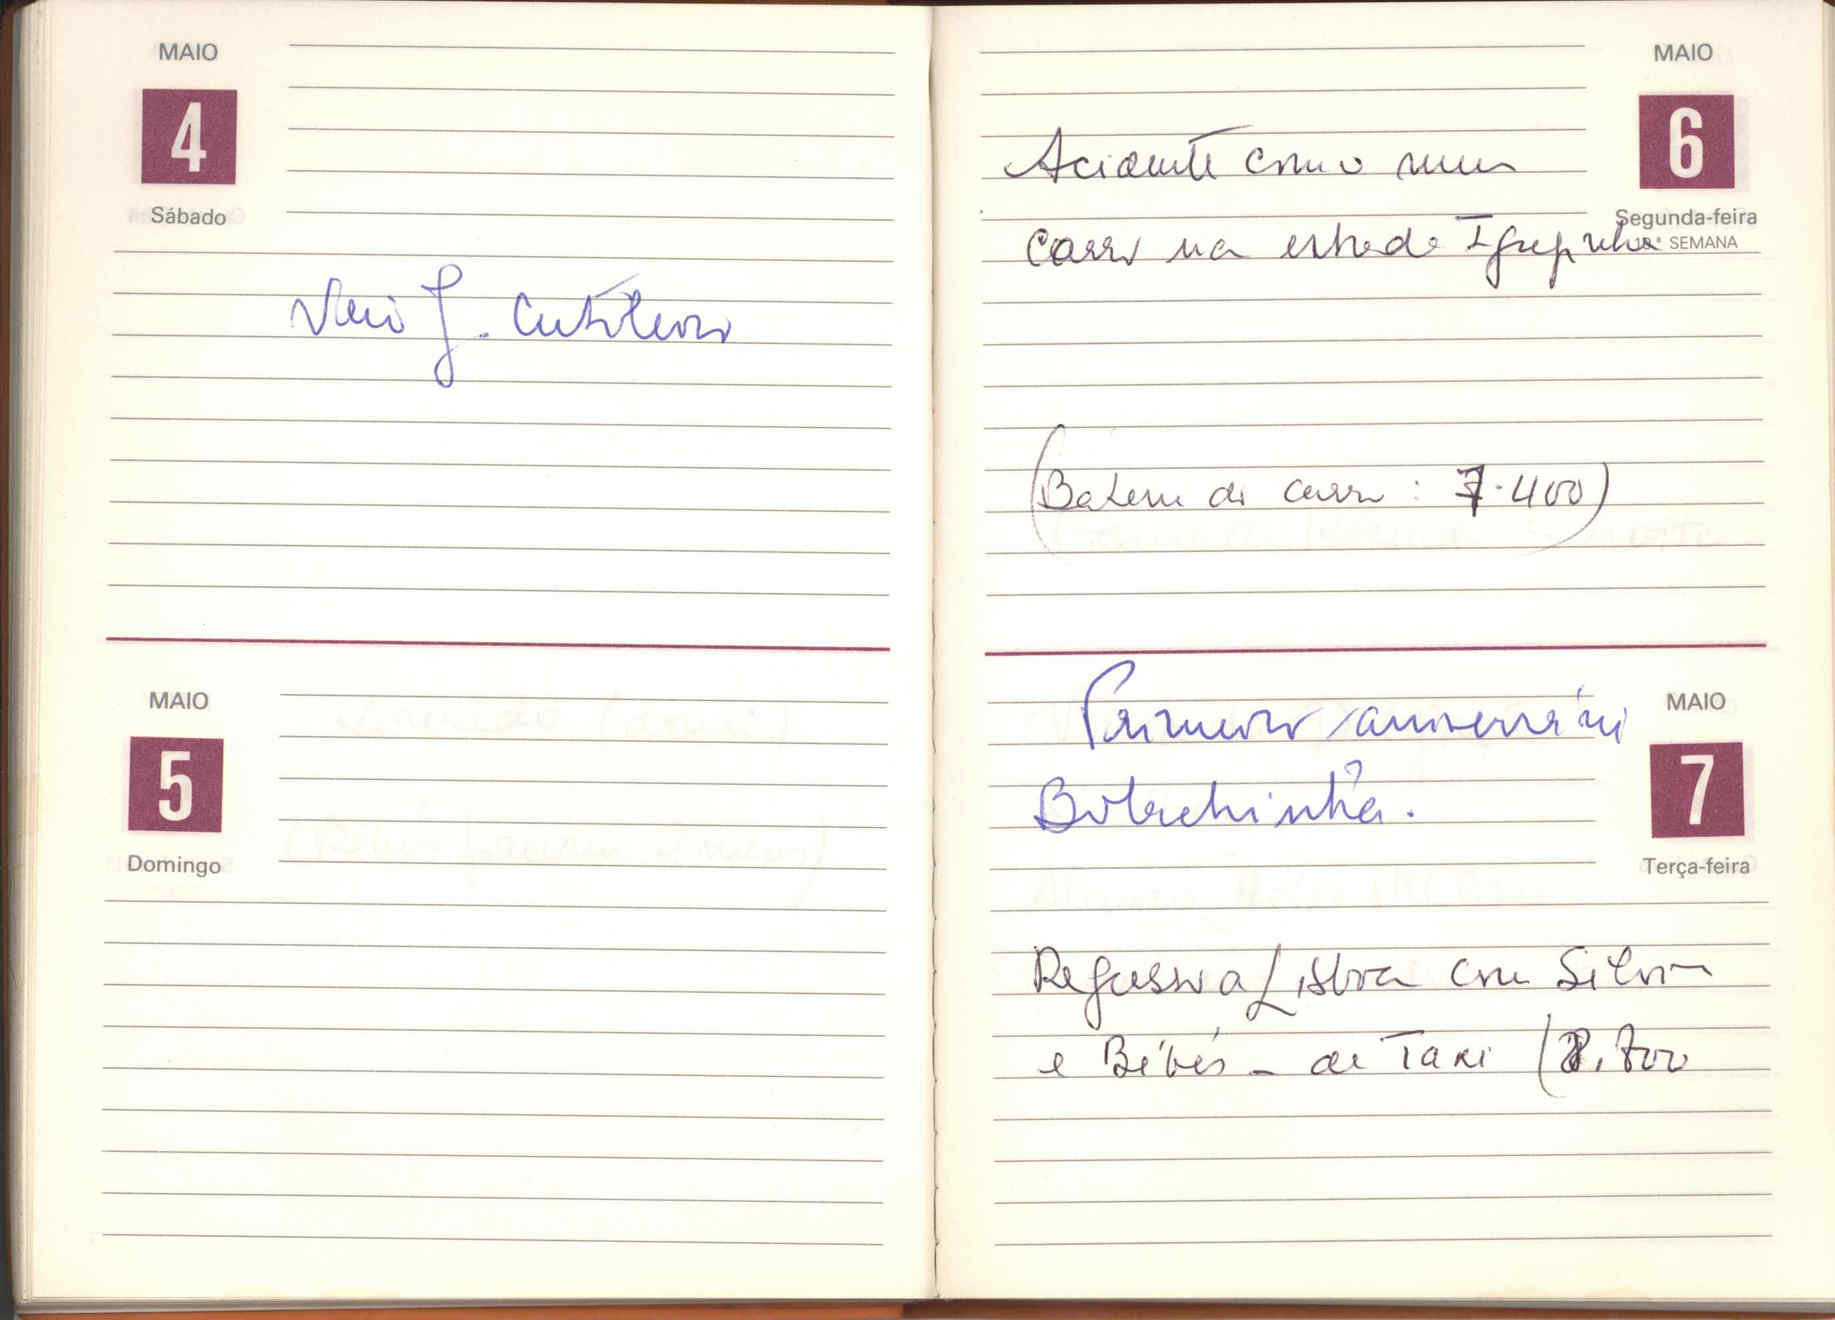 MAIO
4
Sábado
Veio J. Cutileiro
MAIO
5
Domingo
MAIO
6
Segunda-feira
SEMANA
Acidente com o meu
carro na estrada Igrejinha
(Bateu do carro : 7.400)
MAIO
7
Terça-feira
Primeiro aniversário
Bolachinha.
Regresso a Lisboa com Silvia
e Bébés - de Taxi (8.700